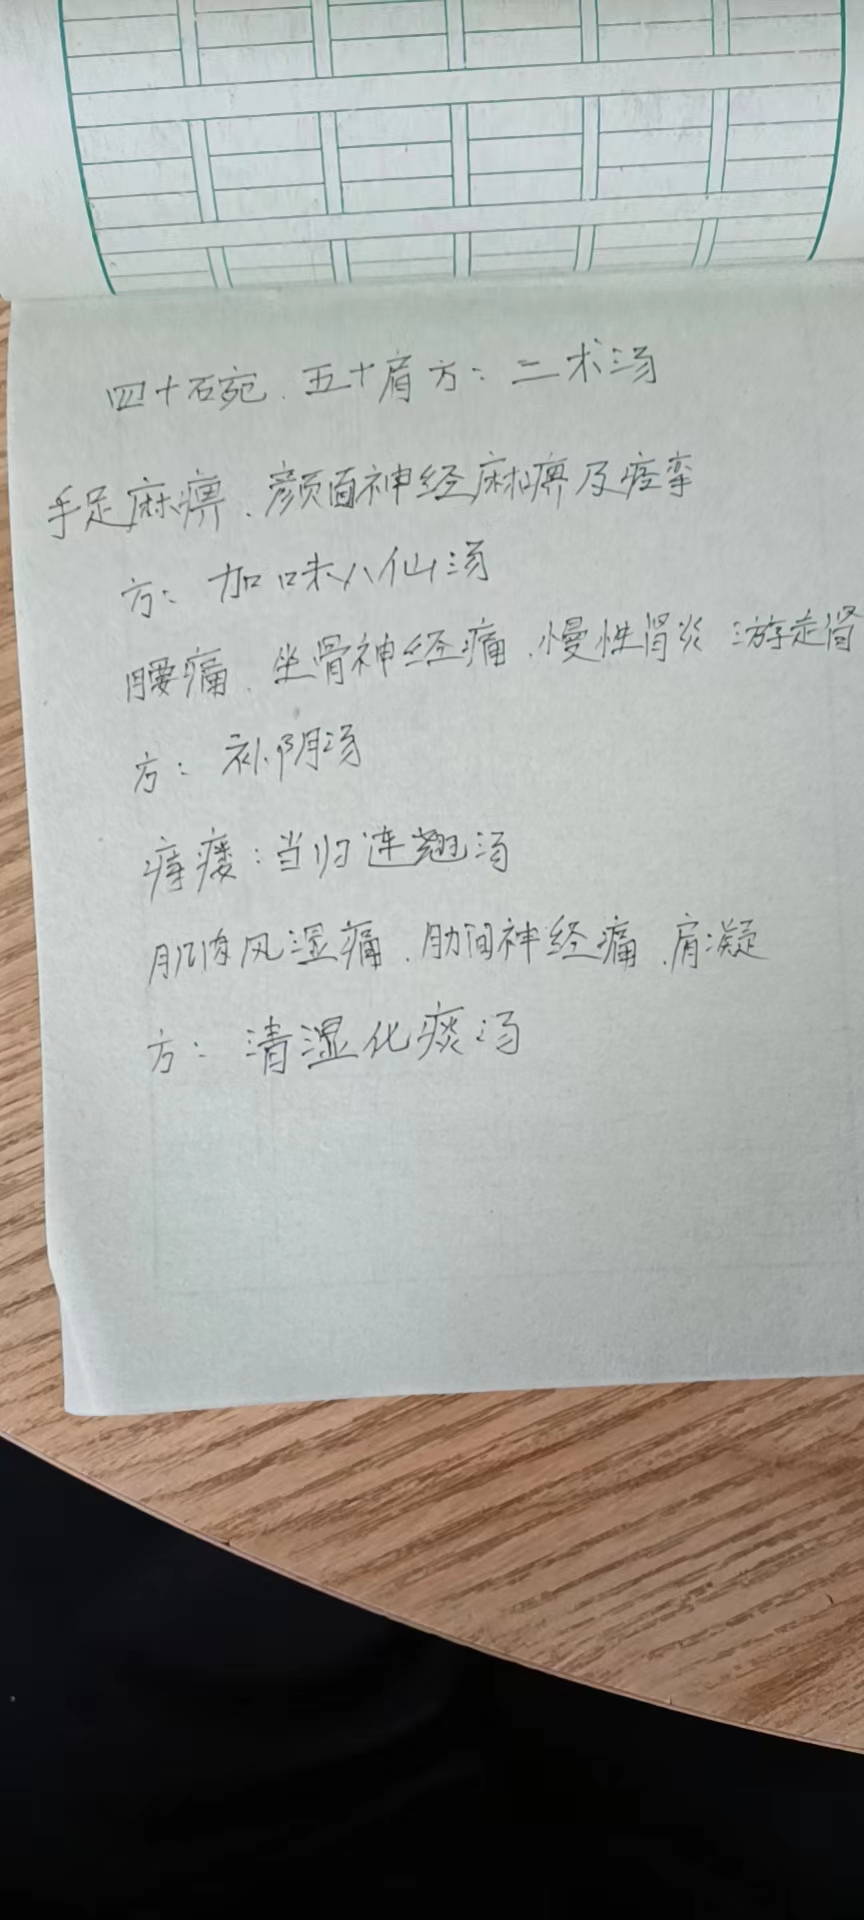 四十碗、五十肩方：二术汤
手足麻痹、颜面神经麻痹及痉挛
方：加味八仙汤
腰痛、坐骨神经痛、慢性肾炎 游走肾
方：补阴汤
痔瘘：当归连翘汤
肌肉风湿痛、肋间神经痛、肩凝
方：清湿化痰汤